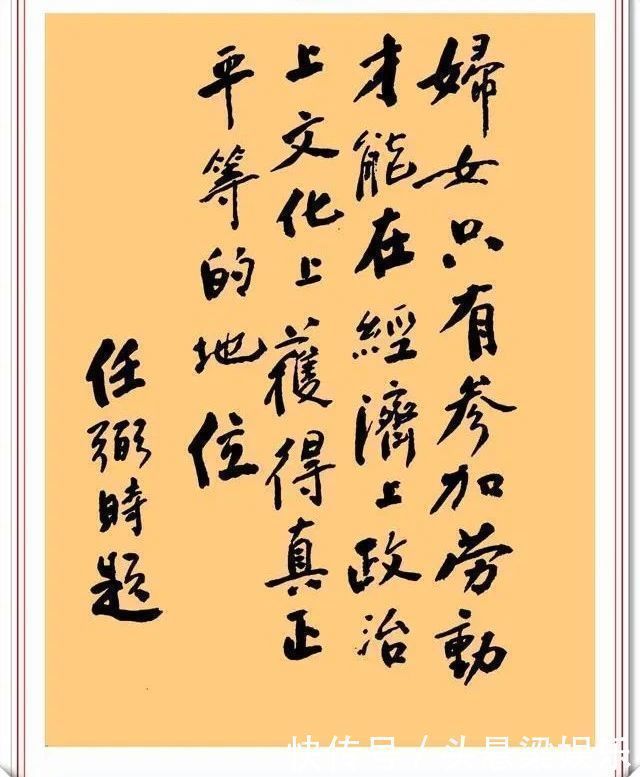 婦女只有参加劳動
才能在經濟上政治
上文化上獲得真正
平等的地位
任弼時題
快传号/头悬梁娱乐